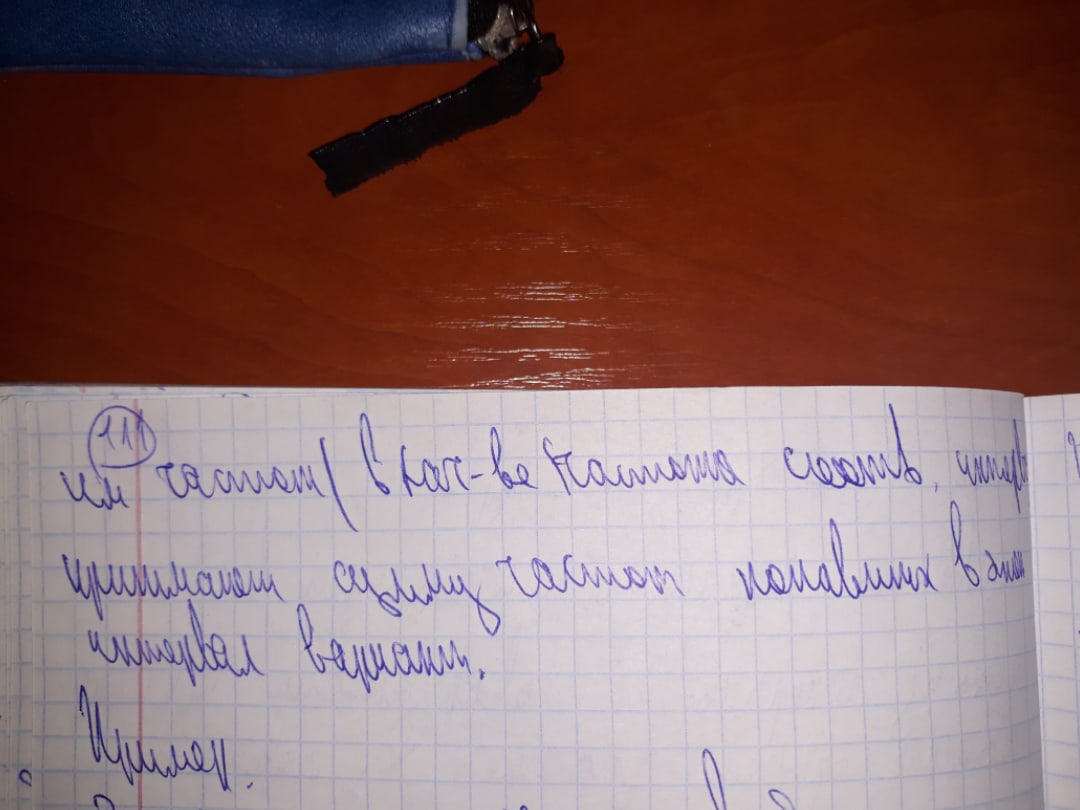 111
им частот ( в кач-ве частота соотв. интерв
принимают сумму частот попавших в этот
интервал вариант.
Пример.